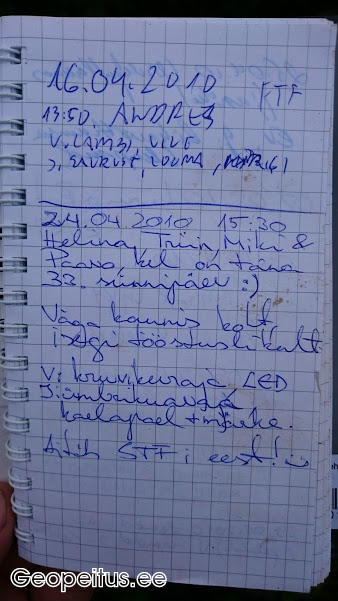 16.04.2010 FTF
13:50, ANDRES
V. LAMBI, VILE
24.04.2010 15:30
Helina, Triin, Miki &
Paavo, kel on täna
33. sünnipäev :)
Väga kaunis koht
isegi tööstuslikult
V: kruvikeeraja, LED
J: ümbrikuavaja
kaelapael + märke.
Aitäh STF i eest!
Geopeitus.ee